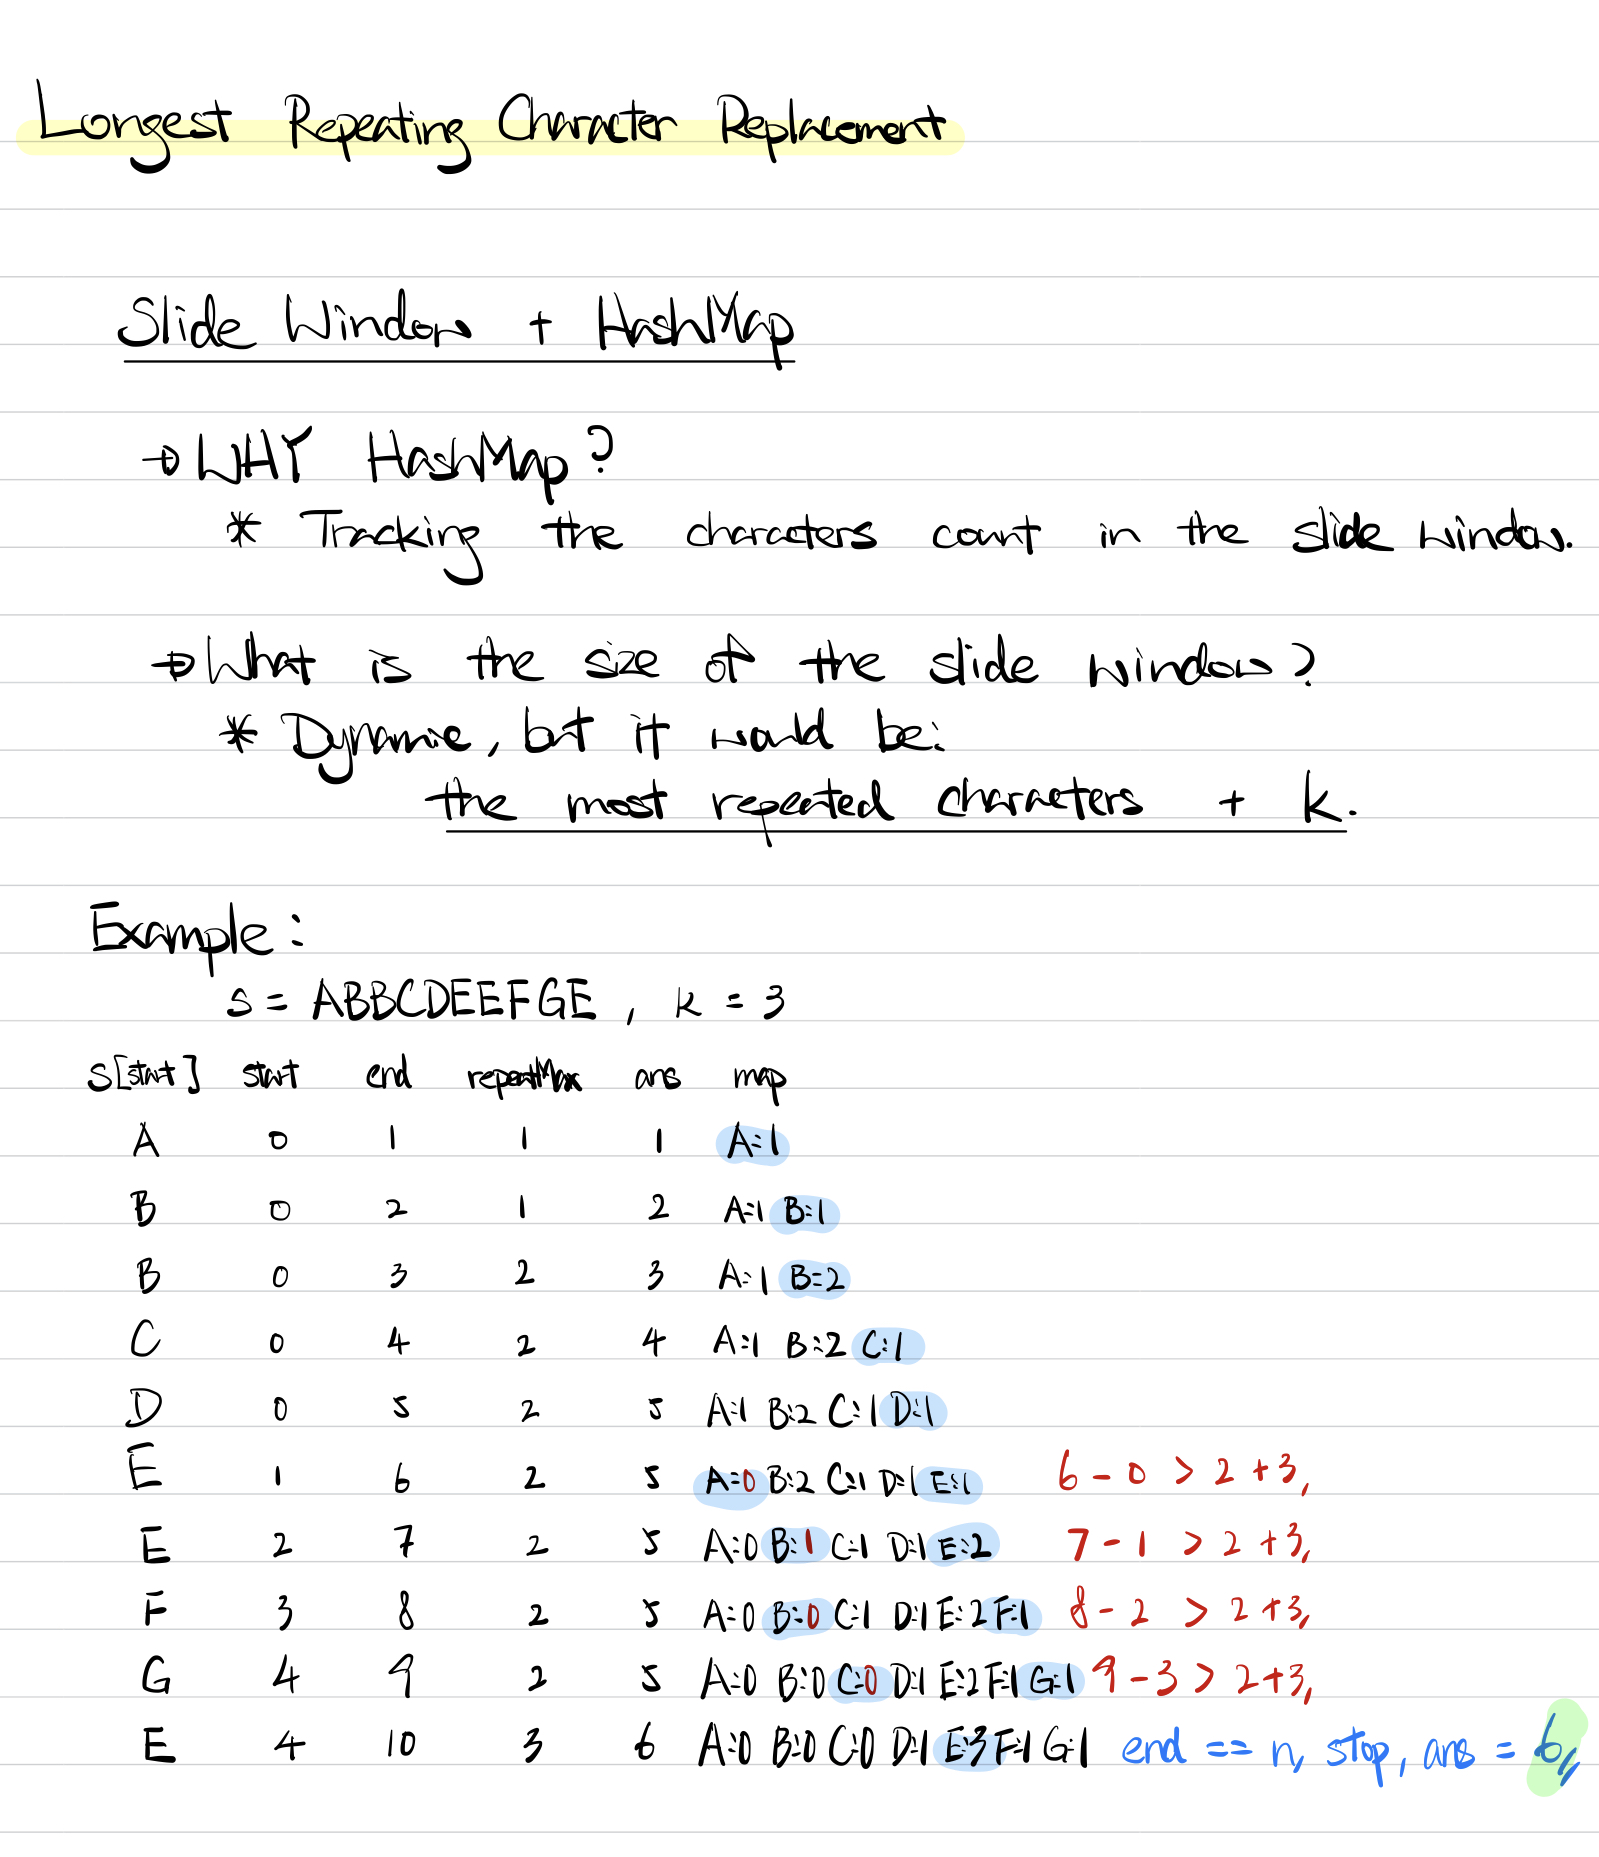 Longest Repeating Character Replacement
Slide Window + HashMap
→ WHY HashMap?
* Tracking the characters count in the slide window.
→ What is the size of the slide window?
* Dynamic, but it would be:
the most repeated characters + k.
Example:
s = ABBCDEEFGE, k = 3
s[start] start end repeatMax ans map
A 0 1 1 1 A:1
B 0 2 1 2 A:1 B:1
B 0 3 2 3 A:1 B:2
C 0 4 2 4 A:1 B:2 C:1
D 0 5 2 5 A:1 B:2 C:1 D:1
E 1 6 2 5 A:0 B:2 C:1 D:1 E:1 6 - 0 > 2 + 3,
E 2 7 2 5 A:0 B:1 C:1 D:1 E:2 7 - 1 > 2 + 3,
F 3 8 2 5 A:0 B:0 C:1 D:1 E:2 F:1 8 - 2 > 2 + 3,
G 4 9 2 5 A:0 B:0 C:0 D:1 E:2 F:1 G:1 9 - 3 > 2 + 3,
E 4 10 3 6 A:0 B:0 C:0 D:1 E:3 F:1 G:1 end == n, stop, ans = 6